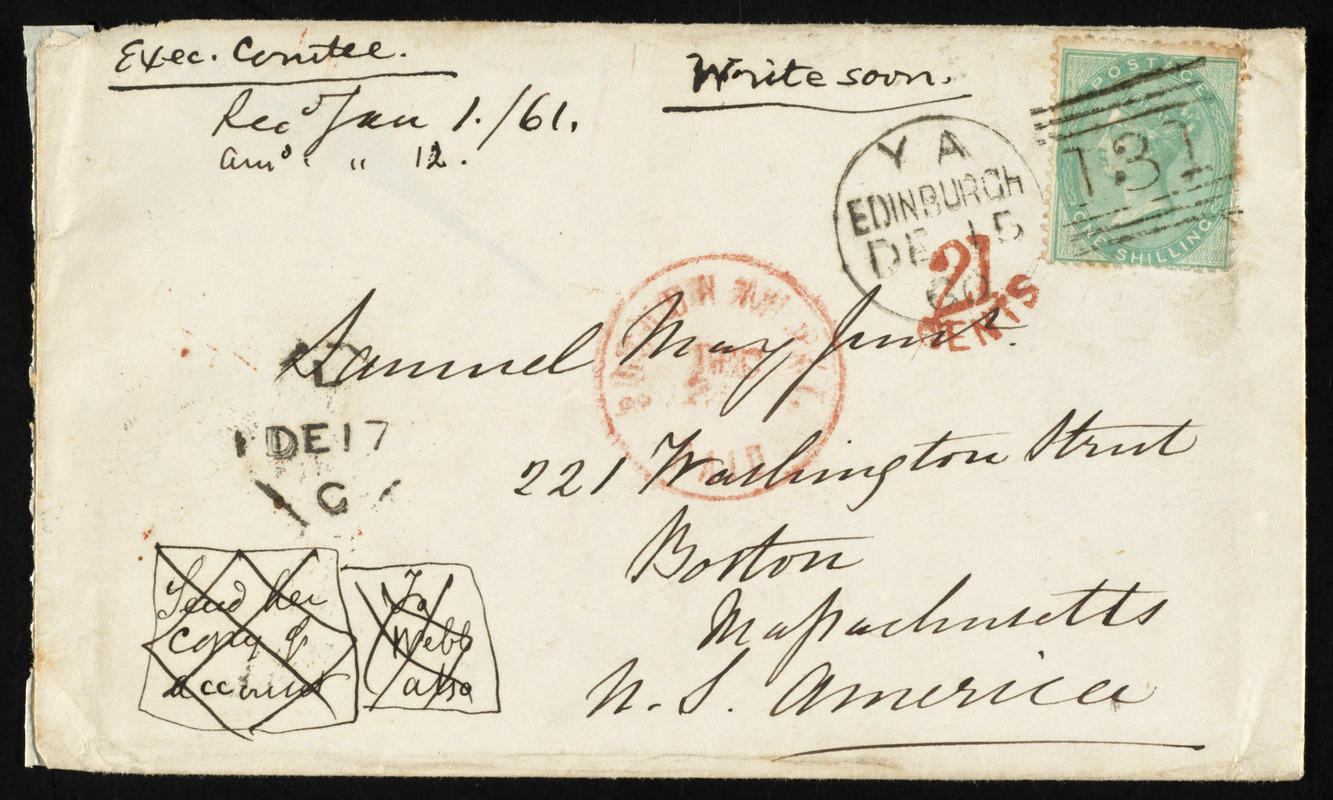 Exec. Comtee.
Write soon.
Recd Jan 1./61.
Ansd. " 12.
POSTAGE
131
ONE SHILLING
YA
EDINBURGH
DE 15
60
21
CENTS
Samuel May Junr.
DE 17
C
221 Washington Street
Boston
Massachusetts
N. S. America
Send her
copy of
account
To
Webb
also